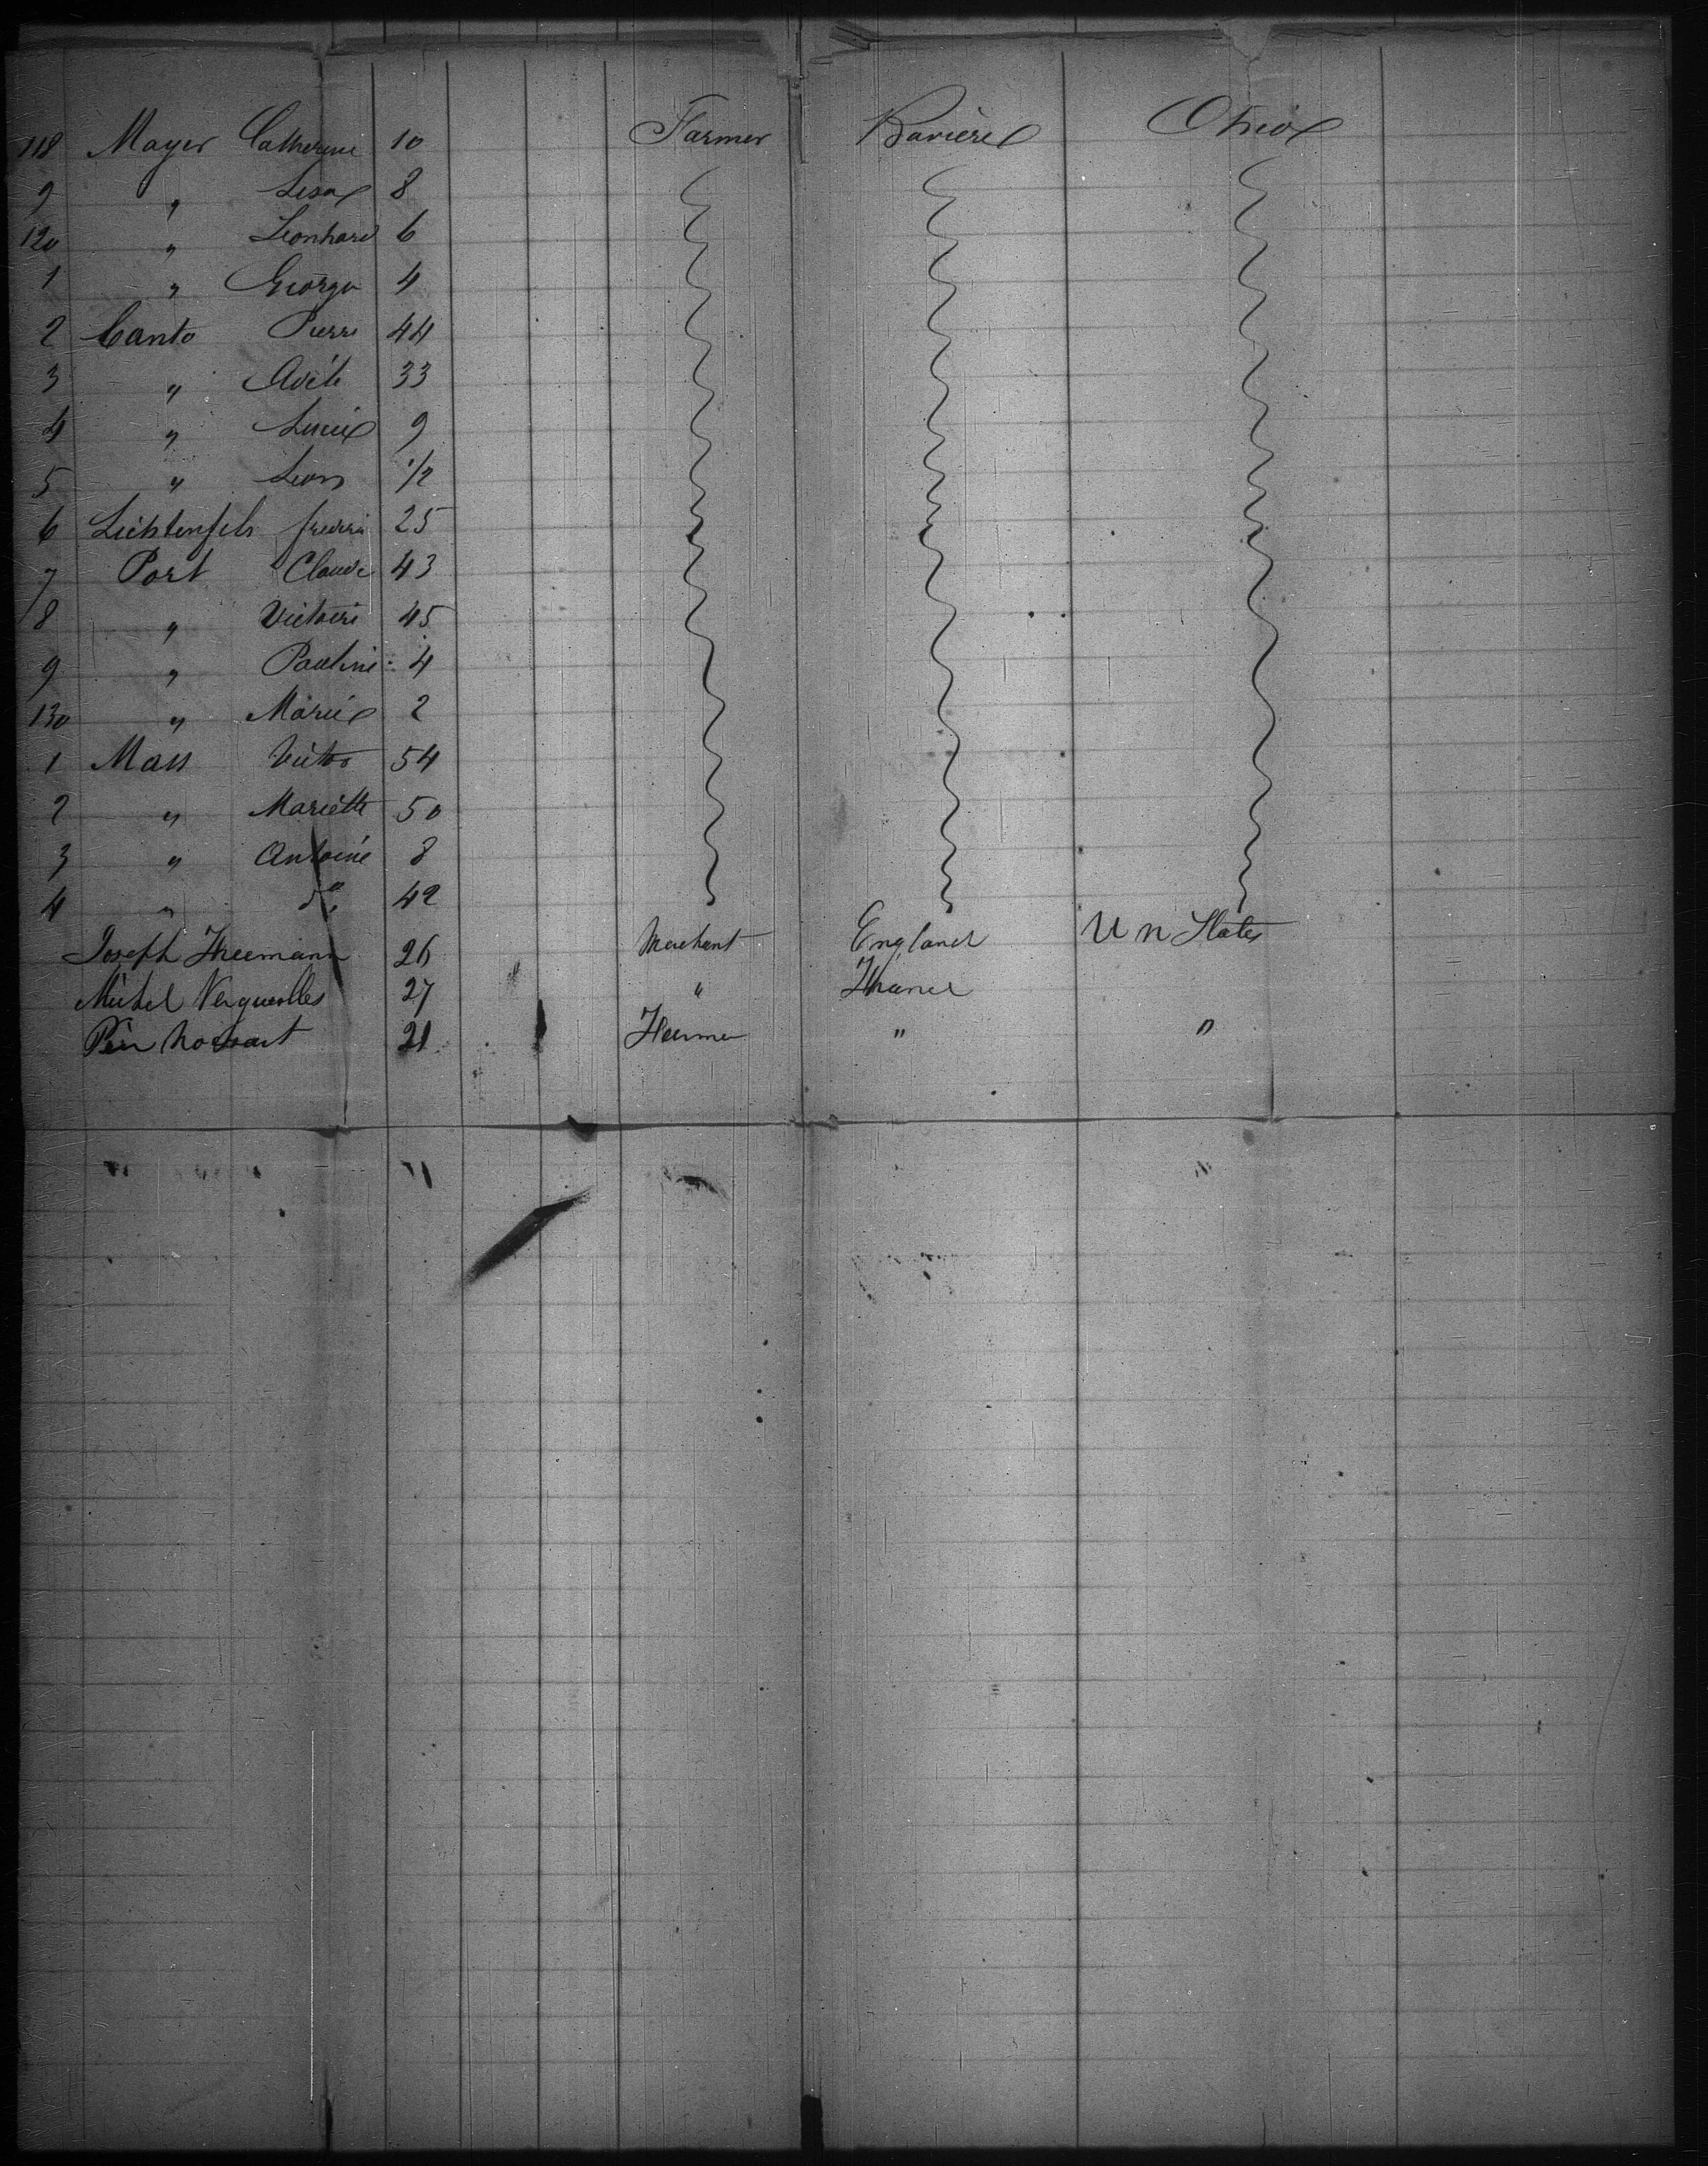 118 Mayer Catherine 10 Farmer Bavière Ohio
9 " Lisa 8
120 " Leonhard 6
1 " George 4
2 Canto Pierre 44
3 " Adèle 33
4 " 9
5 " Leon 1/2
6 Lichtenfels 25
7 Port Claude 43
8 " Victoire 45
9 " Pauline 4
130 " Marie 2
1 Mass Victor 54
2 " Mariette 50
3 " Antoine 8
4 " do 42
Joseph Freemann 26 Merchant England Un States
Michel Verquerolles 27 " France
21 Farmer " "